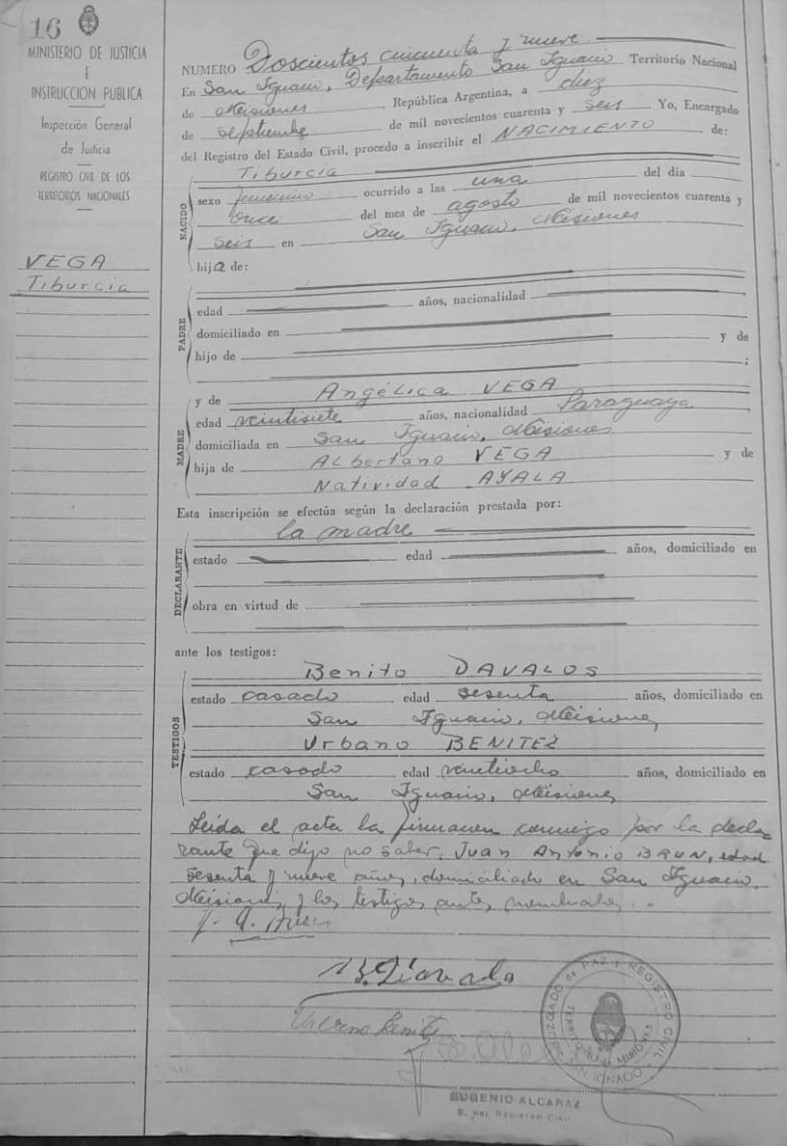 16
MINISTERIO DE JUSTICIA
E
INSTRUCCION PUBLICA
Inspección General
de Justicia
REGISTRO CIVIL DE LOS
TERRITORIOS NACIONALES
VEGA
Tiburcia
NUMERO Doscientos cincuenta y nueve
En San Ignacio, Departamento San Ignacio Territorio Nacional
de Misiones, República Argentina, a diez
de septiembre de mil novecientos cuarenta y seis Yo, Encargado
del Registro del Estado Civil, procedo a inscribir el NACIMIENTO de:
NACIDO
Tiburcia
sexo femenino ocurrido a las una del día
once del mes de agosto de mil novecientos cuarenta y
seis en San Ignacio, Misiones
hija de:
PADRE
edad años, nacionalidad
domiciliado en
hijo de y de
;
MADRE
y de Angélica VEGA
edad veintisiete años, nacionalidad Paraguaya
domiciliada en San Ignacio, Misiones
hija de Albertano VEGA y de
Natividad AYALA
Esta inscripción se efectúa según la declaración prestada por:
DECLARANTE
la madre
estado edad años, domiciliado en
obra en virtud de
ante los testigos:
TESTIGOS
Benito DAVALOS
estado casado edad sesenta años, domiciliado en
San Ignacio, Misiones
Urbano BENITEZ
estado casado edad veintiocho años, domiciliado en
San Ignacio, Misiones
Leída el acta la firmaron conmigo por la decla-
rante que dijo no saber, Juan Antonio BRUN, edad
sesenta y nueve años, domiciliado en San Ignacio,
Misiones, y los testigos antes nombrados.-
B. Dávalo
Urbano Benite
JUZGADO de PAZ Y REGISTRO CIVIL
SAN IGNACIO
EUGENIO ALCARAZ
E. del Registro Civil